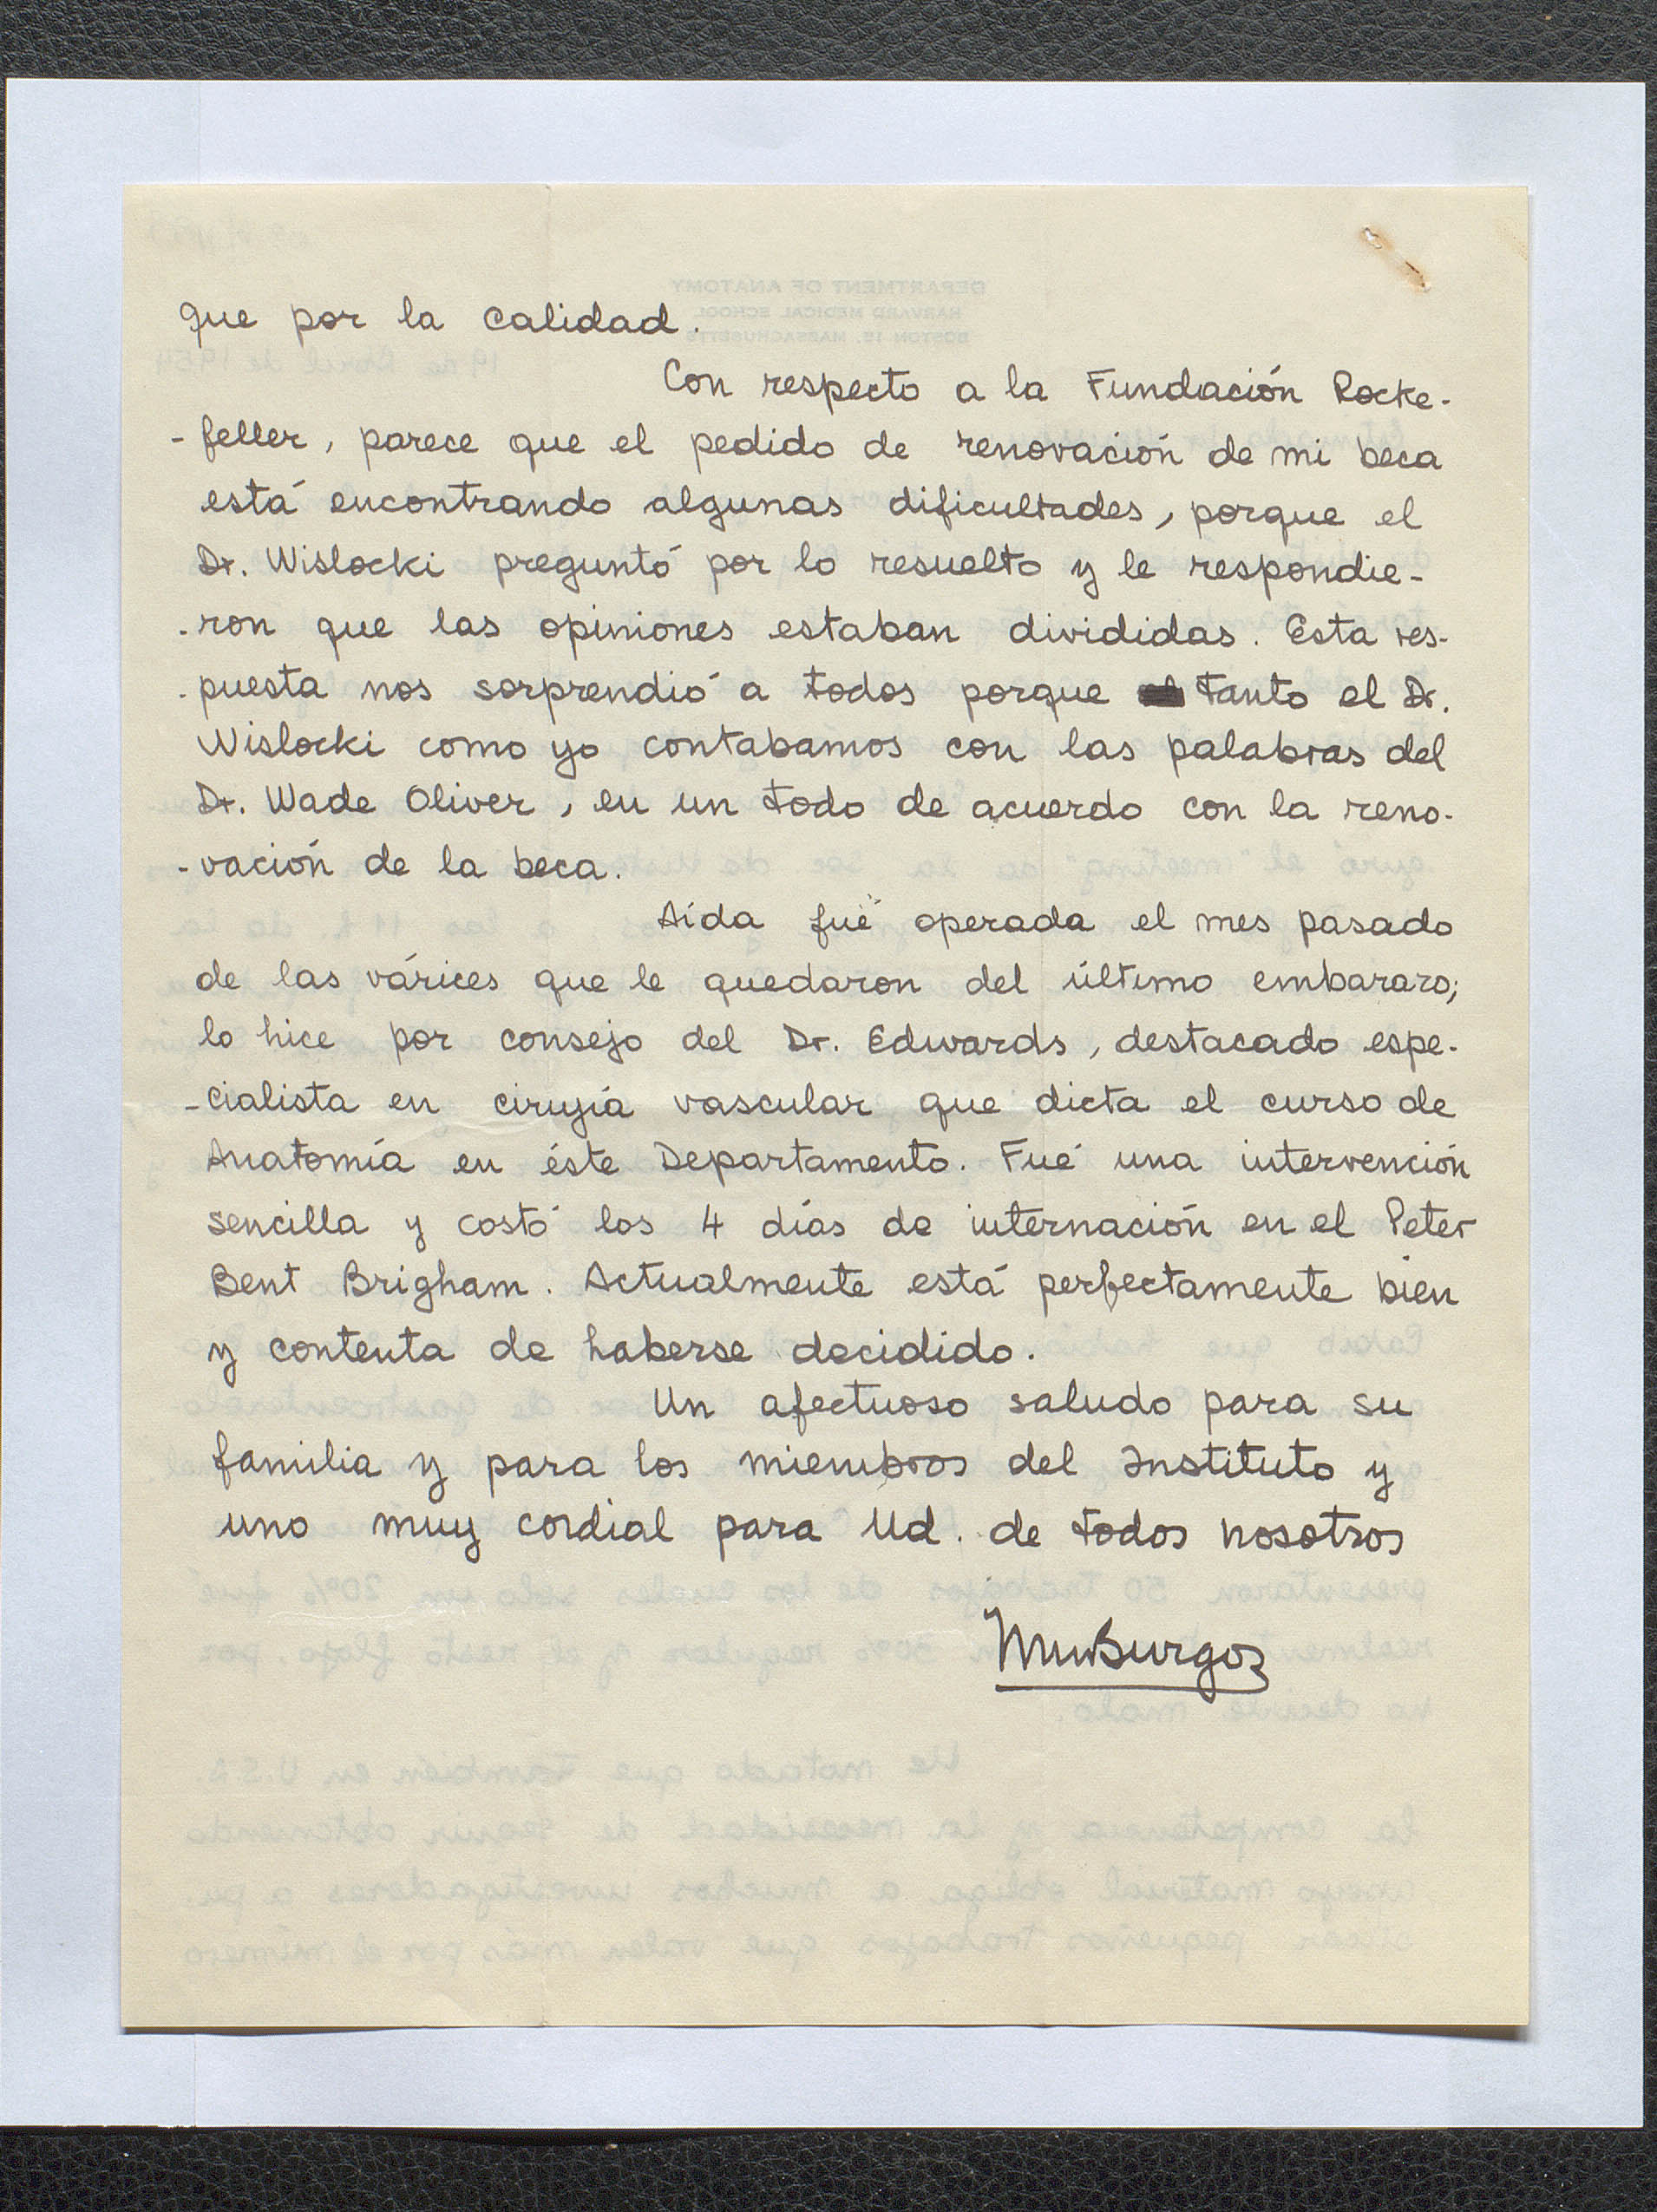 que por la calidad.
Con respecto a la Fundación Rocke-
-feller, parece que el pedido de renovación de mi beca
está encontrando algunas dificultades, porque el
Dr. Wislocki preguntó por lo resuelto y le respondie-
-ron que las opiniones estaban divididas. Esta res-
-puesta nos sorprendió a todos porque tanto el Dr.
Wislocki como yo contabamos con las palabras del
Dr. Wade Oliver, en un todo de acuerdo con la reno-
-vación de la beca.
Aída fué operada el mes pasado
de las várices que le quedaron del último embarazo;
lo hice por consejo del Dr. Edwards, destacado espe-
-cialista en cirujía vascular que dicta el curso de
Anatomía en éste Departamento. Fué una intervención
sencilla y costó los 4 días de internación en el Peter
Bent Brigham. Actualmente está perfectamente bien
y contenta de haberse decidido.
Un afectuoso saludo para su
familia y para los miembros del Instituto y
uno muy cordial para Ud. de todos nosotros
MHBurgos